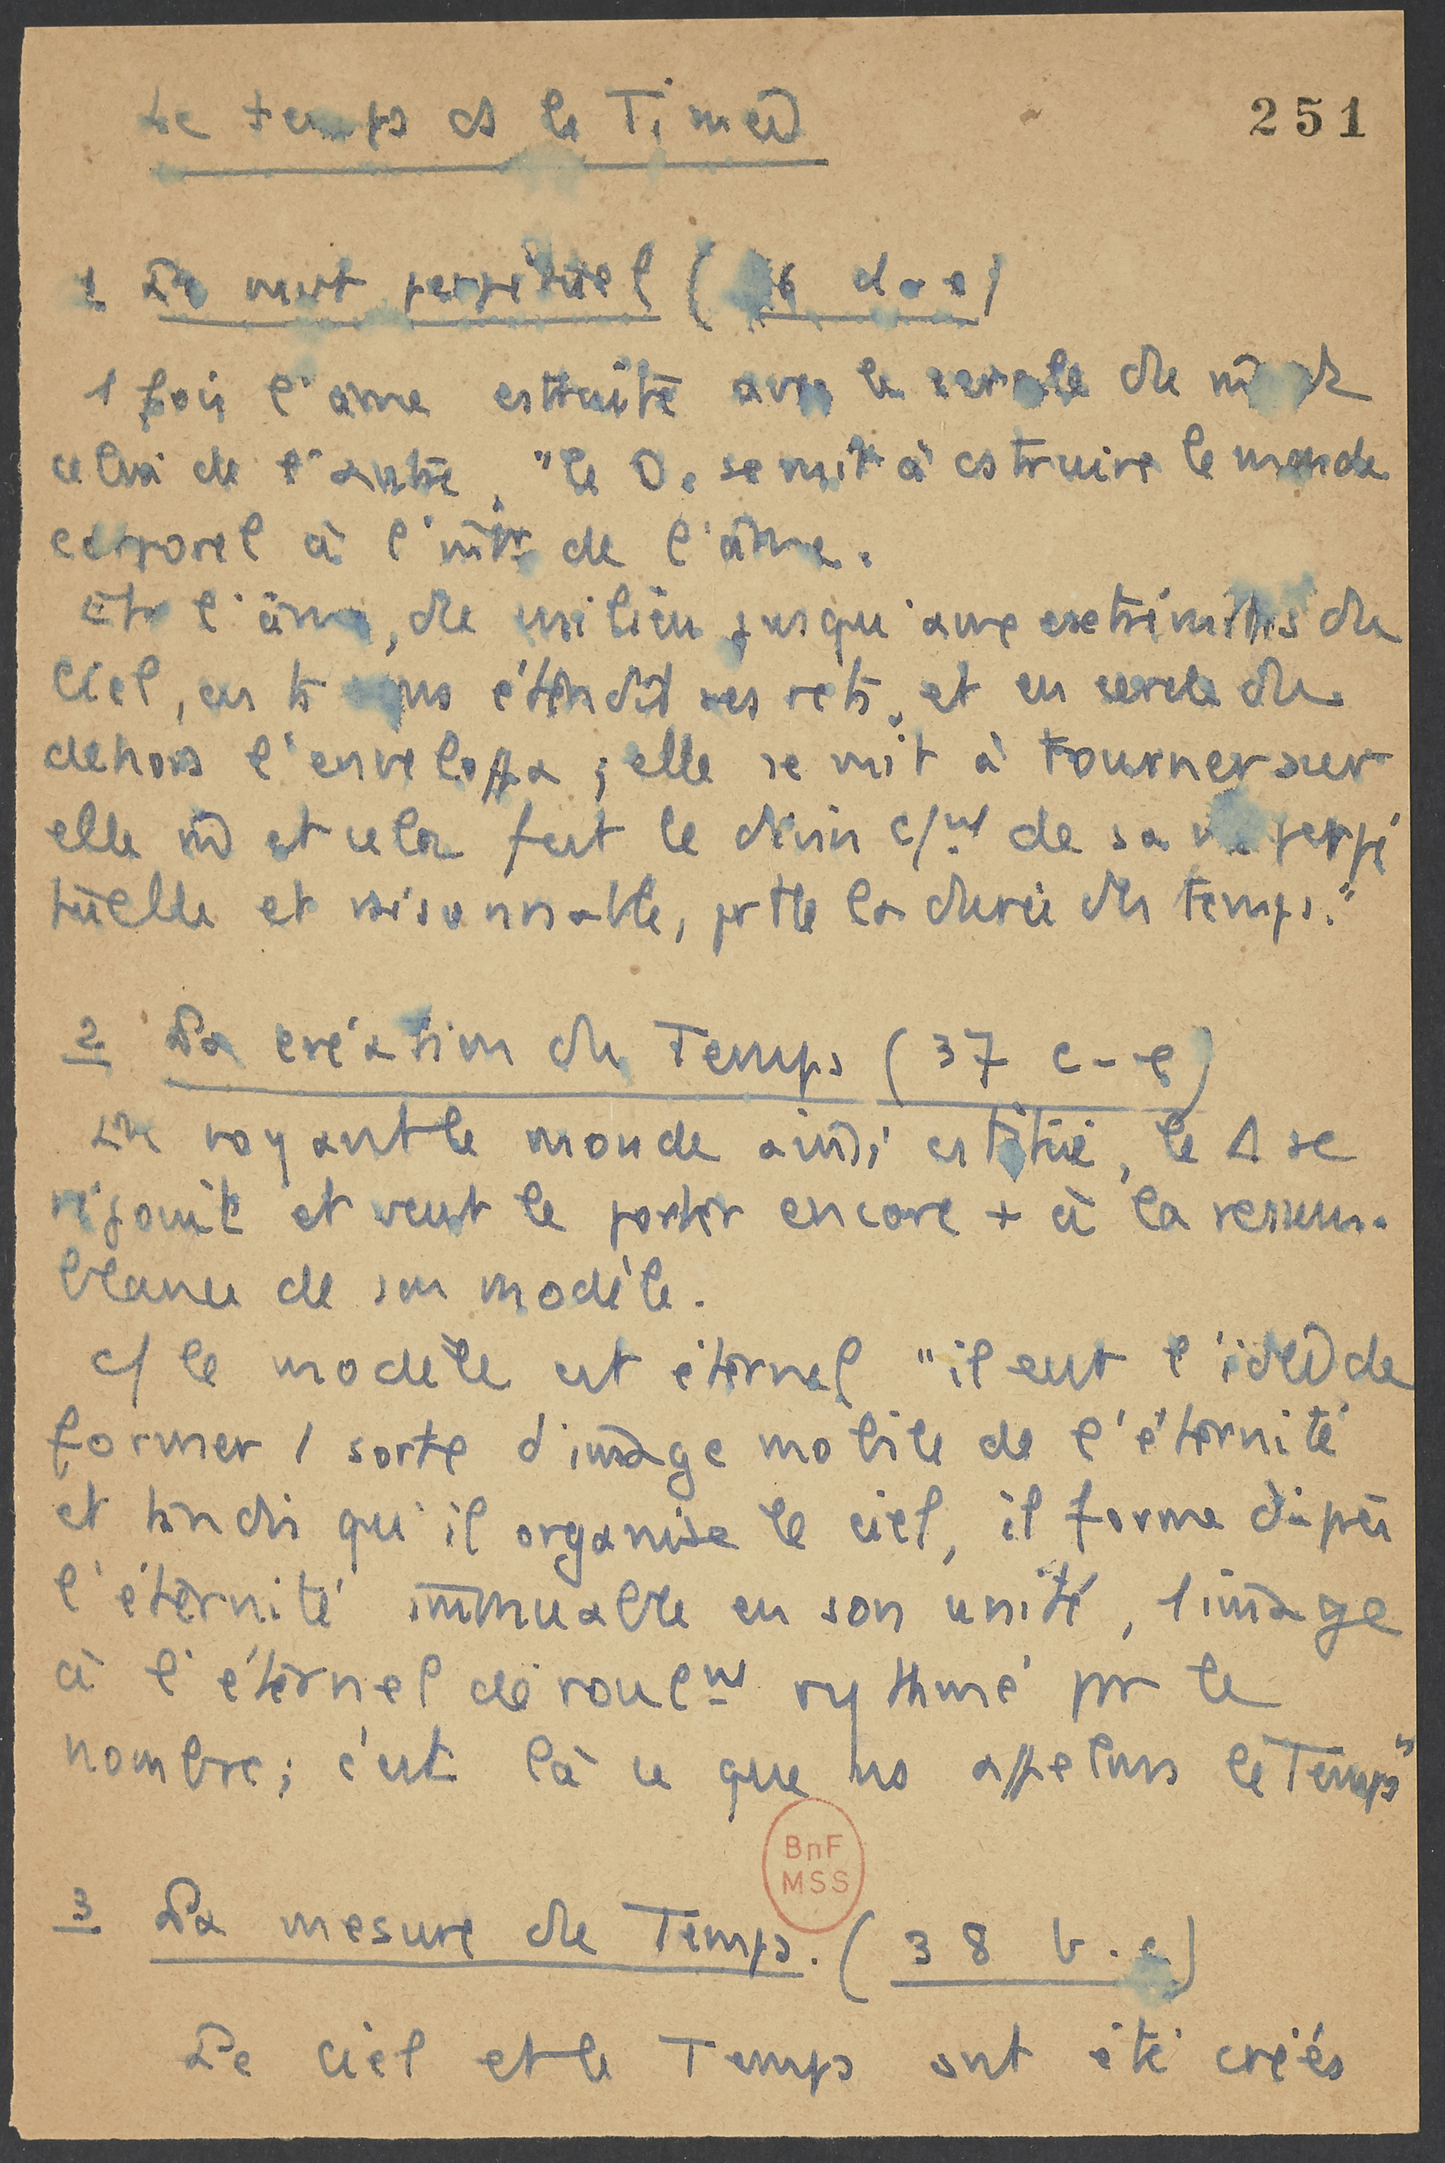 Le temps ds le Timée
251
1 Le mvt perpétuel (36 d-e)
1 fois l'âme cstruite avec le cercle du m̂ et
celui de l'autre, "le D. se mit à cstruire le monde
corporel à l'intr de l'âme.
Et l'âme, du milieu jusqu'aux extrémités du
ciel, en ts sens étendit ses rets, et en cercle du
dehors l'enveloppa ; elle se mit à tourner sur
elle m̂ et cela fut le divin c/mt de sa vie perpé
tuelle et raisonnable, pr tte la durée des temps."
2 La création du Temps (37 c-e)
En voyant le monde ainsi cstitué, le Δ se
réjouit et veut le porter encore + à la ressem-
blance de son modèle.
c/ le modèle est éternel "il eut l'idée de
former 1 sorte d'image mobile de l'éternité
et tandis qu'il organise le ciel, il forme d'après
l'éternité immuable en son unité, 1 image
à l'éternel déroulmt rythmé par le
nombre ; c'est là ce que ns appelons le Temps"
BnF
MSS
3 La mesure du Temps. (38 b-c)
Le ciel et le Temps ont été créés